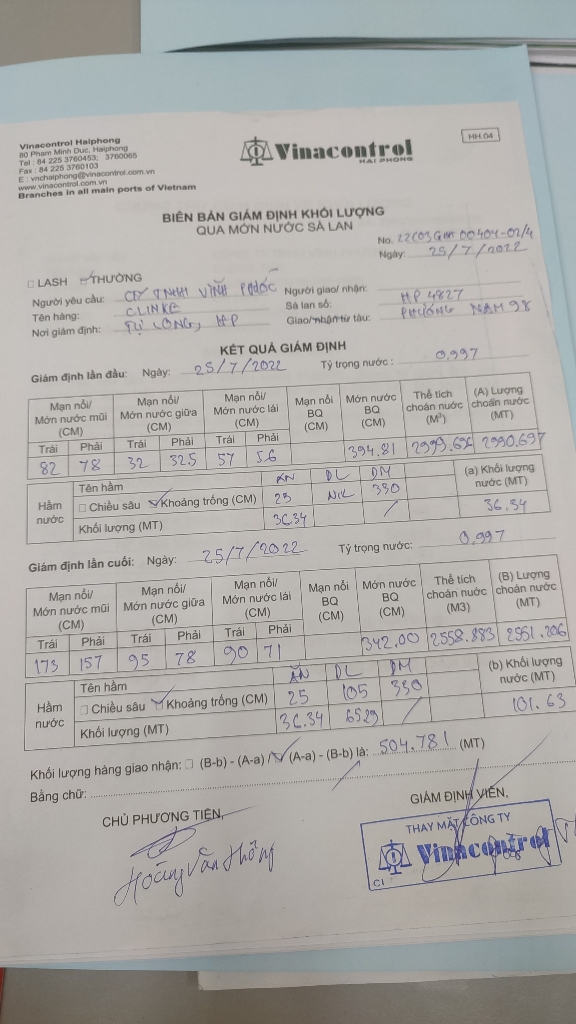 Vinacontrol Haiphong
80 Pham Minh Duc, Haiphong
Tel : 84 225 3760453; 3760065
Fax : 84 225 3760103
E : vnchaiphong@vinacontrol.com.vn
www.vinacontrol.com.vn
Branches in all main ports of Vietnam
Vinacontrol
HAI PHONG
HH.04
BIÊN BẢN GIÁM ĐỊNH KHỐI LƯỢNG
QUA MỚN NƯỚC SÀ LAN
No. 22C03 00404-02/4
Ngày: 25/7/2022
□ LASH ☑ THƯỜNG
Người yêu cầu: CTY TNHH VĨNH PHƯỚC Người giao/ nhận:
Tên hàng: CLINKE Sà lan số: HP 4827
Nơi giám định: TỰ LONG, HP Giao/nhận từ tàu: PHƯƠNG NAM 98
KẾT QUẢ GIÁM ĐỊNH
Giám định lần đầu: Ngày: 25/7/2022 Tỷ trọng nước : 0,997
Mạn nổi/ Mớn nước mũi (CM) Mạn nổi/ Mớn nước giữa (CM) Mạn nổi/ Mớn nước lái (CM) Mạn nổi BQ (CM) Mớn nước BQ (CM) Thể tích choán nước (M³) (A) Lượng choán nước (MT)
Trái Phải Trái Phải Trái Phải
82 78 32 32.5 57 56 394.81 2999.696 2990.697
Hầm nước Tên hầm ĂN DL DM (a) Khối lượng nước (MT)
□ Chiều sâu ☑ Khoảng trống (CM) 25 NIL 330
Khối lượng (MT) 36.34 / 36.34
Giám định lần cuối: Ngày: 25/7/2022 Tỷ trọng nước: 0,997
Mạn nổi/ Mớn nước mũi (CM) Mạn nổi/ Mớn nước giữa (CM) Mạn nổi/ Mớn nước lái (CM) Mạn nổi BQ (CM) Mớn nước BQ (CM) Thể tích choán nước (M3) (B) Lượng choán nước (MT)
Trái Phải Trái Phải Trái Phải
173 157 95 78 90 71 342.00 2558.883 2551.206
Hầm nước Tên hầm ĂN DL DM (b) Khối lượng nước (MT)
□ Chiều sâu ☑ Khoảng trống (CM) 25 105 330
Khối lượng (MT) 36.34 65.29 / 101.63
Khối lượng hàng giao nhận: □ (B-b) - (A-a) / ☑ (A-a) - (B-b) là: 504.781 (MT)
Bằng chữ:
CHỦ PHƯƠNG TIỆN, GIÁM ĐỊNH VIÊN,
Hoàng Văn Thông
THAY MẶT CÔNG TY
Vinacontrol
C1